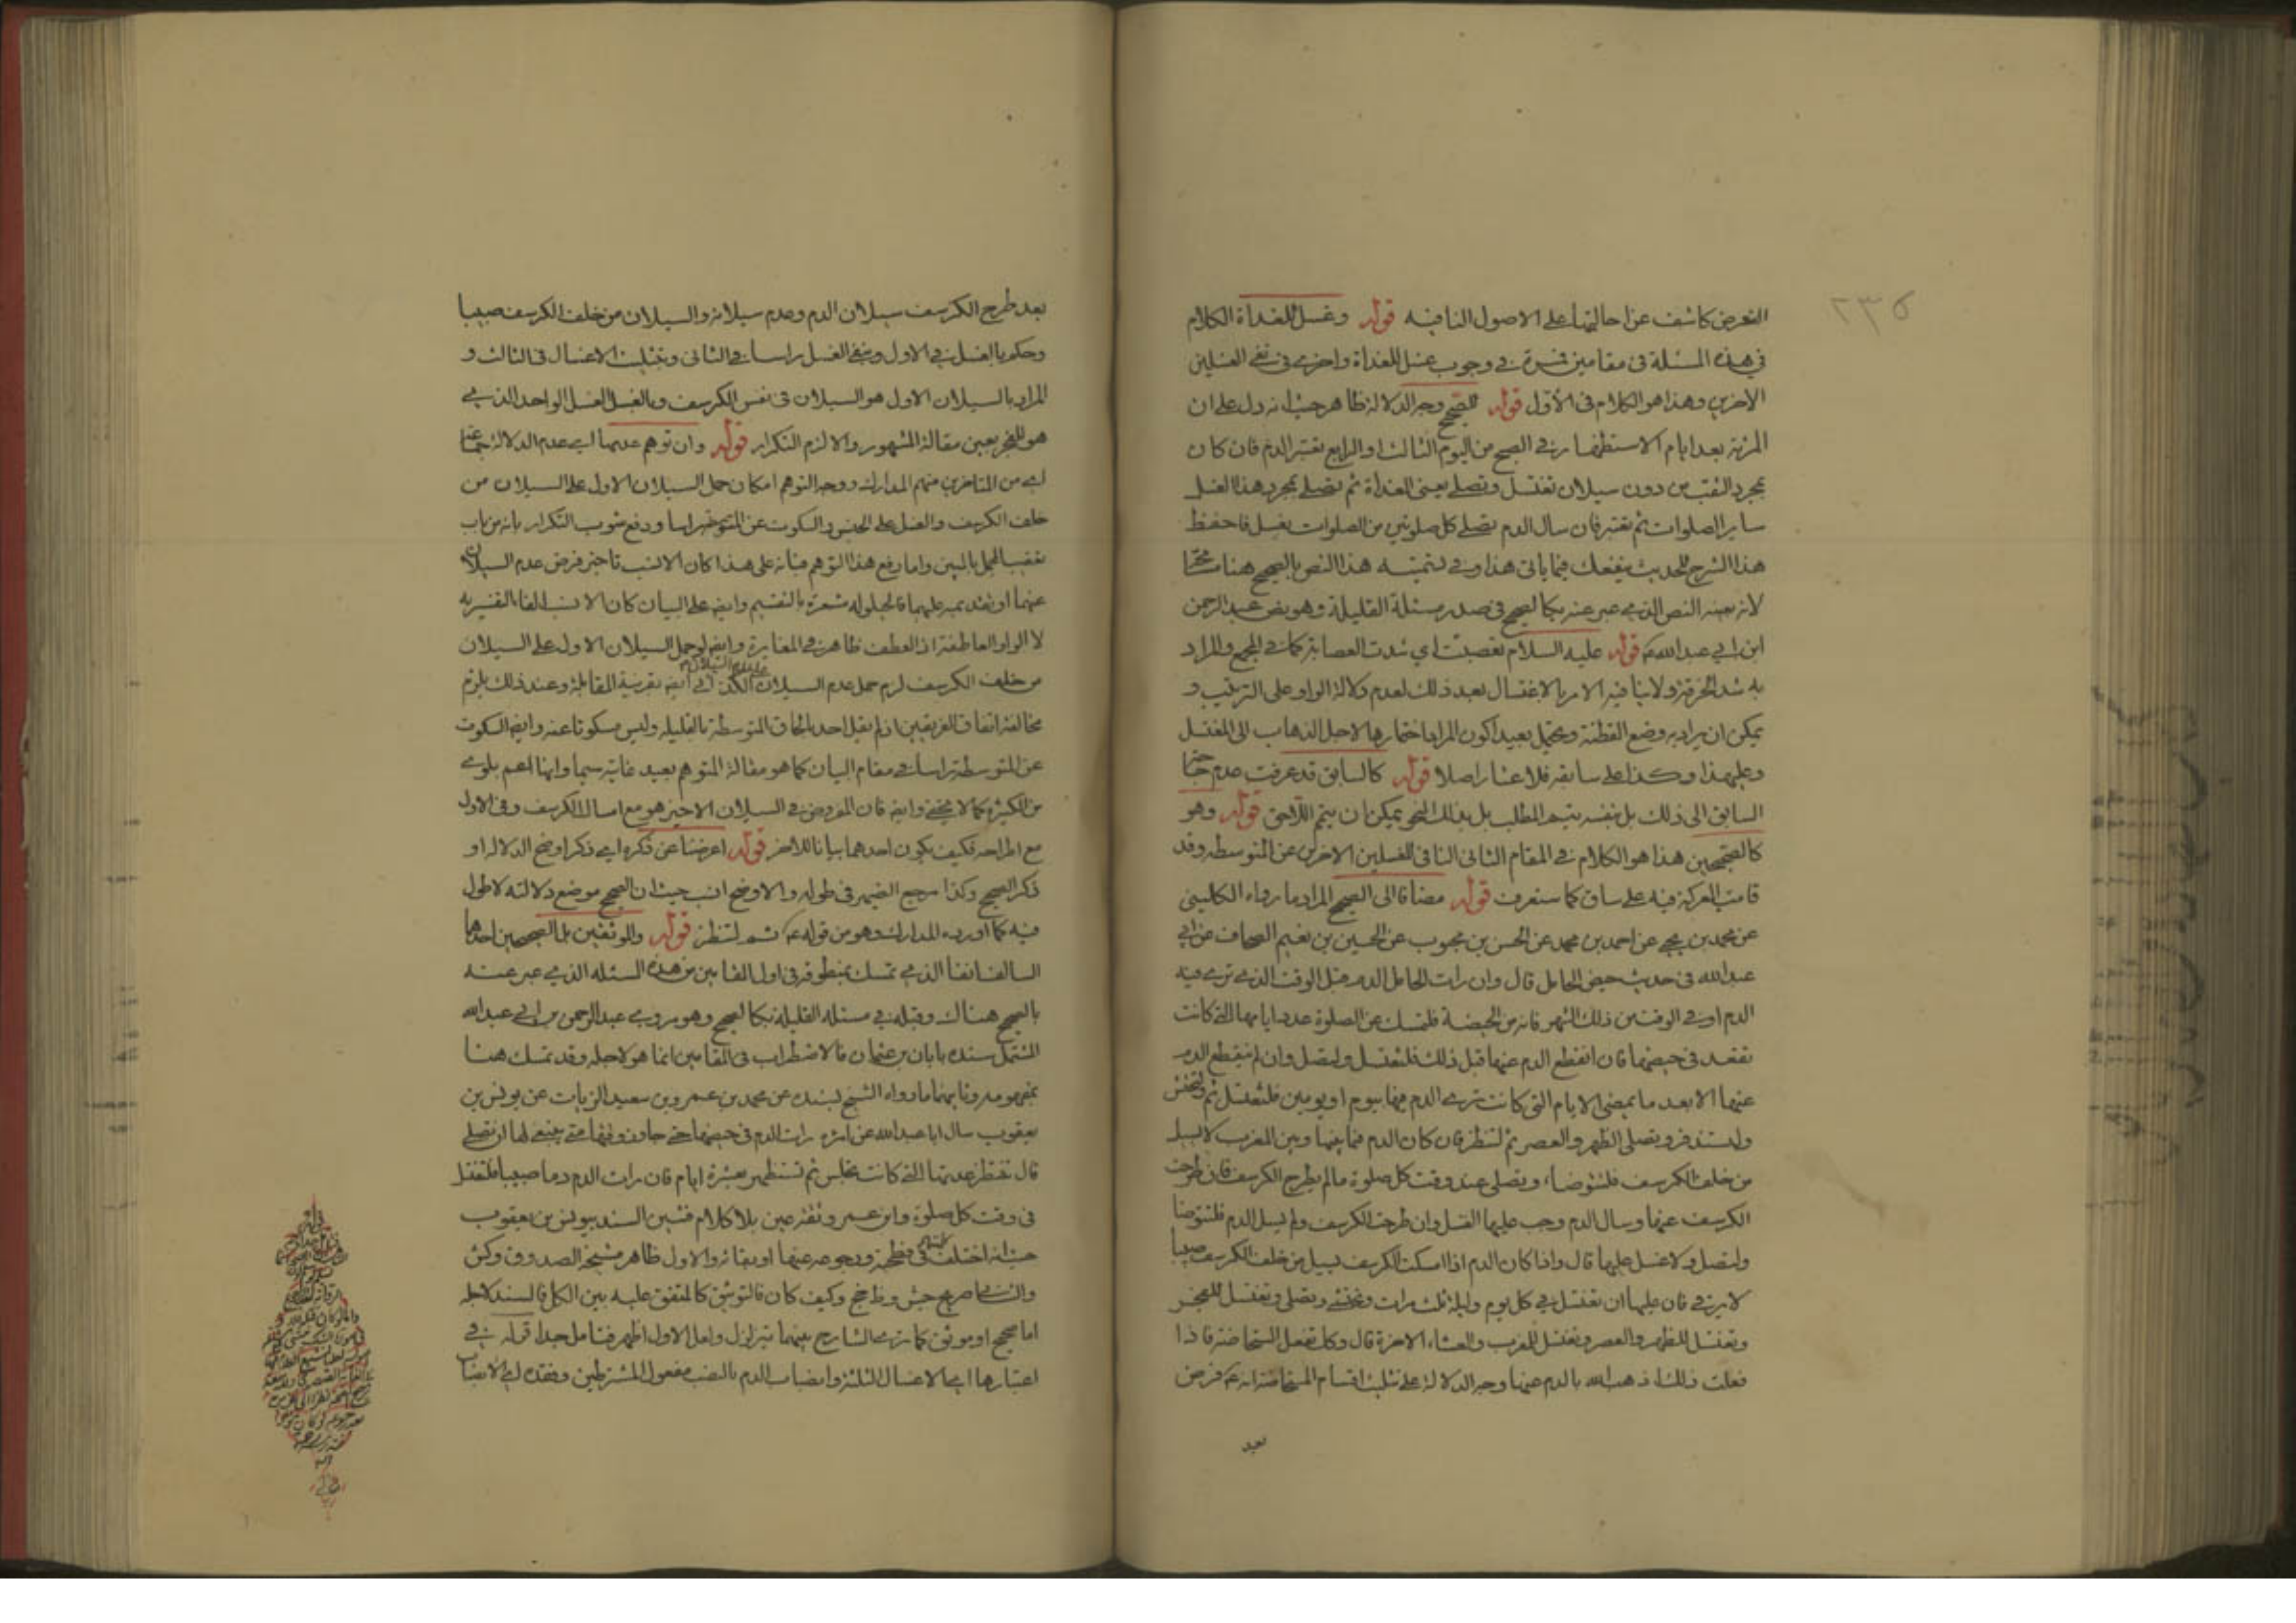 ٢٣٥
كاشف عن احالتها على الاصول النافيه قوله وغسل للغداة الكلام
في هذه المسئلة في مقامين في وجوب غسل للغداة واخرى في نفى الغسلين
الاخرين وهذا هو الكلام في الأول قوله للصحيح وجه الدلالة ظاهر حيث انه دل على ان
المرئة بعد ايام الاستظهار في الصحيح من اليوم الثالث او الرابع تعتبر الدم فان كان
بمجرد الثقب من دون سيلان تغتسل وتصلى يعنى الغداة ثم تصلى بمجرد هذا الغسل
ساير الصلوات ثم تعتبر فان سال الدم تصلى كل صلوتين من الصلوات بغسل فاحفظ
هذا الشرح للحديث ينفعك فيما ياتى هذا وفي تسميته هذا النص بالصحيح هنا
لانه بعينه النص الذي عبر عنه بكالصحيح في صدر مسئلة القليلة وهو نص عبد الرحمن
ابن ابي عبد الله قوله عليه السلام تعصبت اي شدت العصابة كما في المجمع والمراد
به شد الخرقة ولا ينافيه الامر بالاغتسال بعد ذلك لعدم دلالة الواو على الترتيب و
يمكن ان يراد به وضع القطنة ويحتمل بعيدا كون المراد اختمارها لاجل الذهاب الى المغتسل
وعليهذا وكذا على سابقه فلا عثار اصلا قوله كالسابق قد عرفت عدم
السابق الى ذلك بل بنفسه يتم المطلب بل بذلك النحو يمكن ان يتم اللاحق قوله وهو
كالصحيحين هذا هو الكلام في المقام الثانى النافى للغسلين الاخرين عن المتوسطه وقد
قامت المعركة فيه على ساق كما ستعرف قوله مضافا الى الصحيح المراد ما رواه الكلينى
عن محمد بن يحيى عن احمد بن محمد عن الحسن بن محبوب عن الحسين بن نعيم الصحاف عن ابي
عبد الله في حديث حيض الحامل قال وان رات الحامل الدم قبل الوقت الذي ترى فيه
الدم او في الوقت من ذلك الشهر فانه من الحيضة فلتمسك عن الصلوة عدد ايامها التى كانت
تقعد في حيضها فان انقطع الدم عنها قبل ذلك فلتغتسل ولتصل وان لم ينقطع الدم
عنها الا بعد ما يمضى الايام التى كانت ترى الدم فيها بيوم او يومين فلتغتسل ثم تحتشى
ولتستذفر وتصلى الظهر والعصر ثم لتنظر فان كان الدم فيما بينها وبين المغرب لا يسيل
من خلف الكرسف فلتتوضا وتصلى عند وقت كل صلوة ما لم يطرح الكرسف فان طرحت
الكرسف عنها وسال الدم وجب عليها الغسل وان طرحت الكرسف ولم يسل الدم فلتتوضا
ولتصل ولا غسل عليها قال واذا كان الدم اذا امسكت الكرسف يسيل من خلف الكرسف صبيبا
لا يرقى فان عليها ان تغتسل في كل يوم وليلة ثلث مرات وتحتشى وتصلى وتغتسل للفجر
وتغتسل للظهر والعصر وتغتسل للمغرب والعشاء الاخرة قال وكك تفعل المستحاضة فاذا
فعلت ذلك اذهب الله بالدم عنها وجه الدلالة على تثليث اقسام المستحاضة انه فرض
بعد
بعد طرح الكرسف سيلان الدم وعدم سيلانه والسيلان من خلف الكرسف صبيبا
وحكم بالغسل في الاول ونفى الغسل راسا في الثانى وتثليث الاغسال في الثالث و
المراد بالسيلان الاول هو السيلان في نفس الكرسف وبالغسل الغسل الواحد الذي
هو للفجر بعين مقالة المشهور والا لزم التكرار قوله وان توهم عدمها اي عدم الدلالة
اي من المتاخرين منهم المدارك ووجه التوهم امكان حمل السيلان الاول على السيلان من
خلف الكرسف والغسل على الجنس والسكوت عن المتوسط راسا ودفع شوب التكرار بانه من باب
تعقيب المجمل بالمبين واما رفع هذا التوهم فبانه على هذا كان الانسب تاخير فرض عدم السيلان
عنهما او تقديمه عليهما فالحيلولة مشعرة بالتقسيم وايض على البيان كان الانسب الفاء التفسيريه
لا الواو العاطفة اذ العطف ظاهر في المغايرة وايض لو حمل السيلان الاول على السيلان
من خلف الكرسف لزم حمل عدم السيلان عليه ايض بقرينة المقابلة وعند ذلك يلزم
مخالفة اتفاق الفريقين اذ لم يقل احد بالحاق المتوسطة بالقليلة وليس مسكوتا عنه وايض السكوت
عن المتوسطة راسا في مقام البيان كما هو مقالة المتوهم بعيد غايته سيما وانها اعم بلوى
من الكثيرة كما لا يخفى وايض فان المفروض في السيلان الاخير هو مع امساك الكرسف وفى الاول
مع اطراحه فكيف يكون احدهما بيانا للاخر قوله اعرضنا عن ذكره اي ذكر اوضح الدلالة او
ذكر الصحيح وكذا مرجع الضمير في طوله والاوضح انسب حيث ان الصحيح موضع دلالته لا طول
فيه كما اورده المدارك وهو من قوله ثم لتنظر قوله وللموثقين بل الصحيحين احدهما
السالف انفا الذي تمسك بمنطوقه في اول المقامين من هذه المسئله الذي عبر عنه
بالصحيح هناك وقبله في مسئله القليلة بكالصحيح وهو مروى عبد الرحمن بن ابي عبد الله
المشتمل سنده بابان بن عثمان فالاضطراب في المقامين انما هو لاجله وقد تمسك هنا
بمفهومه وثانيهما ما رواه الشيخ بسنده عن محمد بن عمرو بن سعيد الزيات عن يونس بن
يعقوب سال ابا عبد الله عن امرئة رات الدم في حيضها حتى جاوز وقتها متى ينبغى لها ان تصلى
قال تنتظر عدتها التى كانت تجلس ثم تستظهر بعشرة ايام فان رات الدم دما صبيبا فلتغتسل
في وقت كل صلوة وابن عمرو ثقة عين بلا كلام فتبين السند بيونس بن يعقوب
حيث انه اختلف في فطحيته ورجوعه عنها او بقائه والاول ظاهر مشيخة الصدوق وكش
والثانى صريح جش وظاهر جخ وكيف كان فالتوثيق كالمتفق عليه بين الكل فالسند لاجله
اما صحيح او موثق كما ترى الشارح بينهما يتزلزل ولعل الاول اظهر فتامل جدا قوله في
اعتبارها اي الاغسال الثلثة وانصباب الدم بالنصب مفعول المشترطين وفقده اي الانصباب